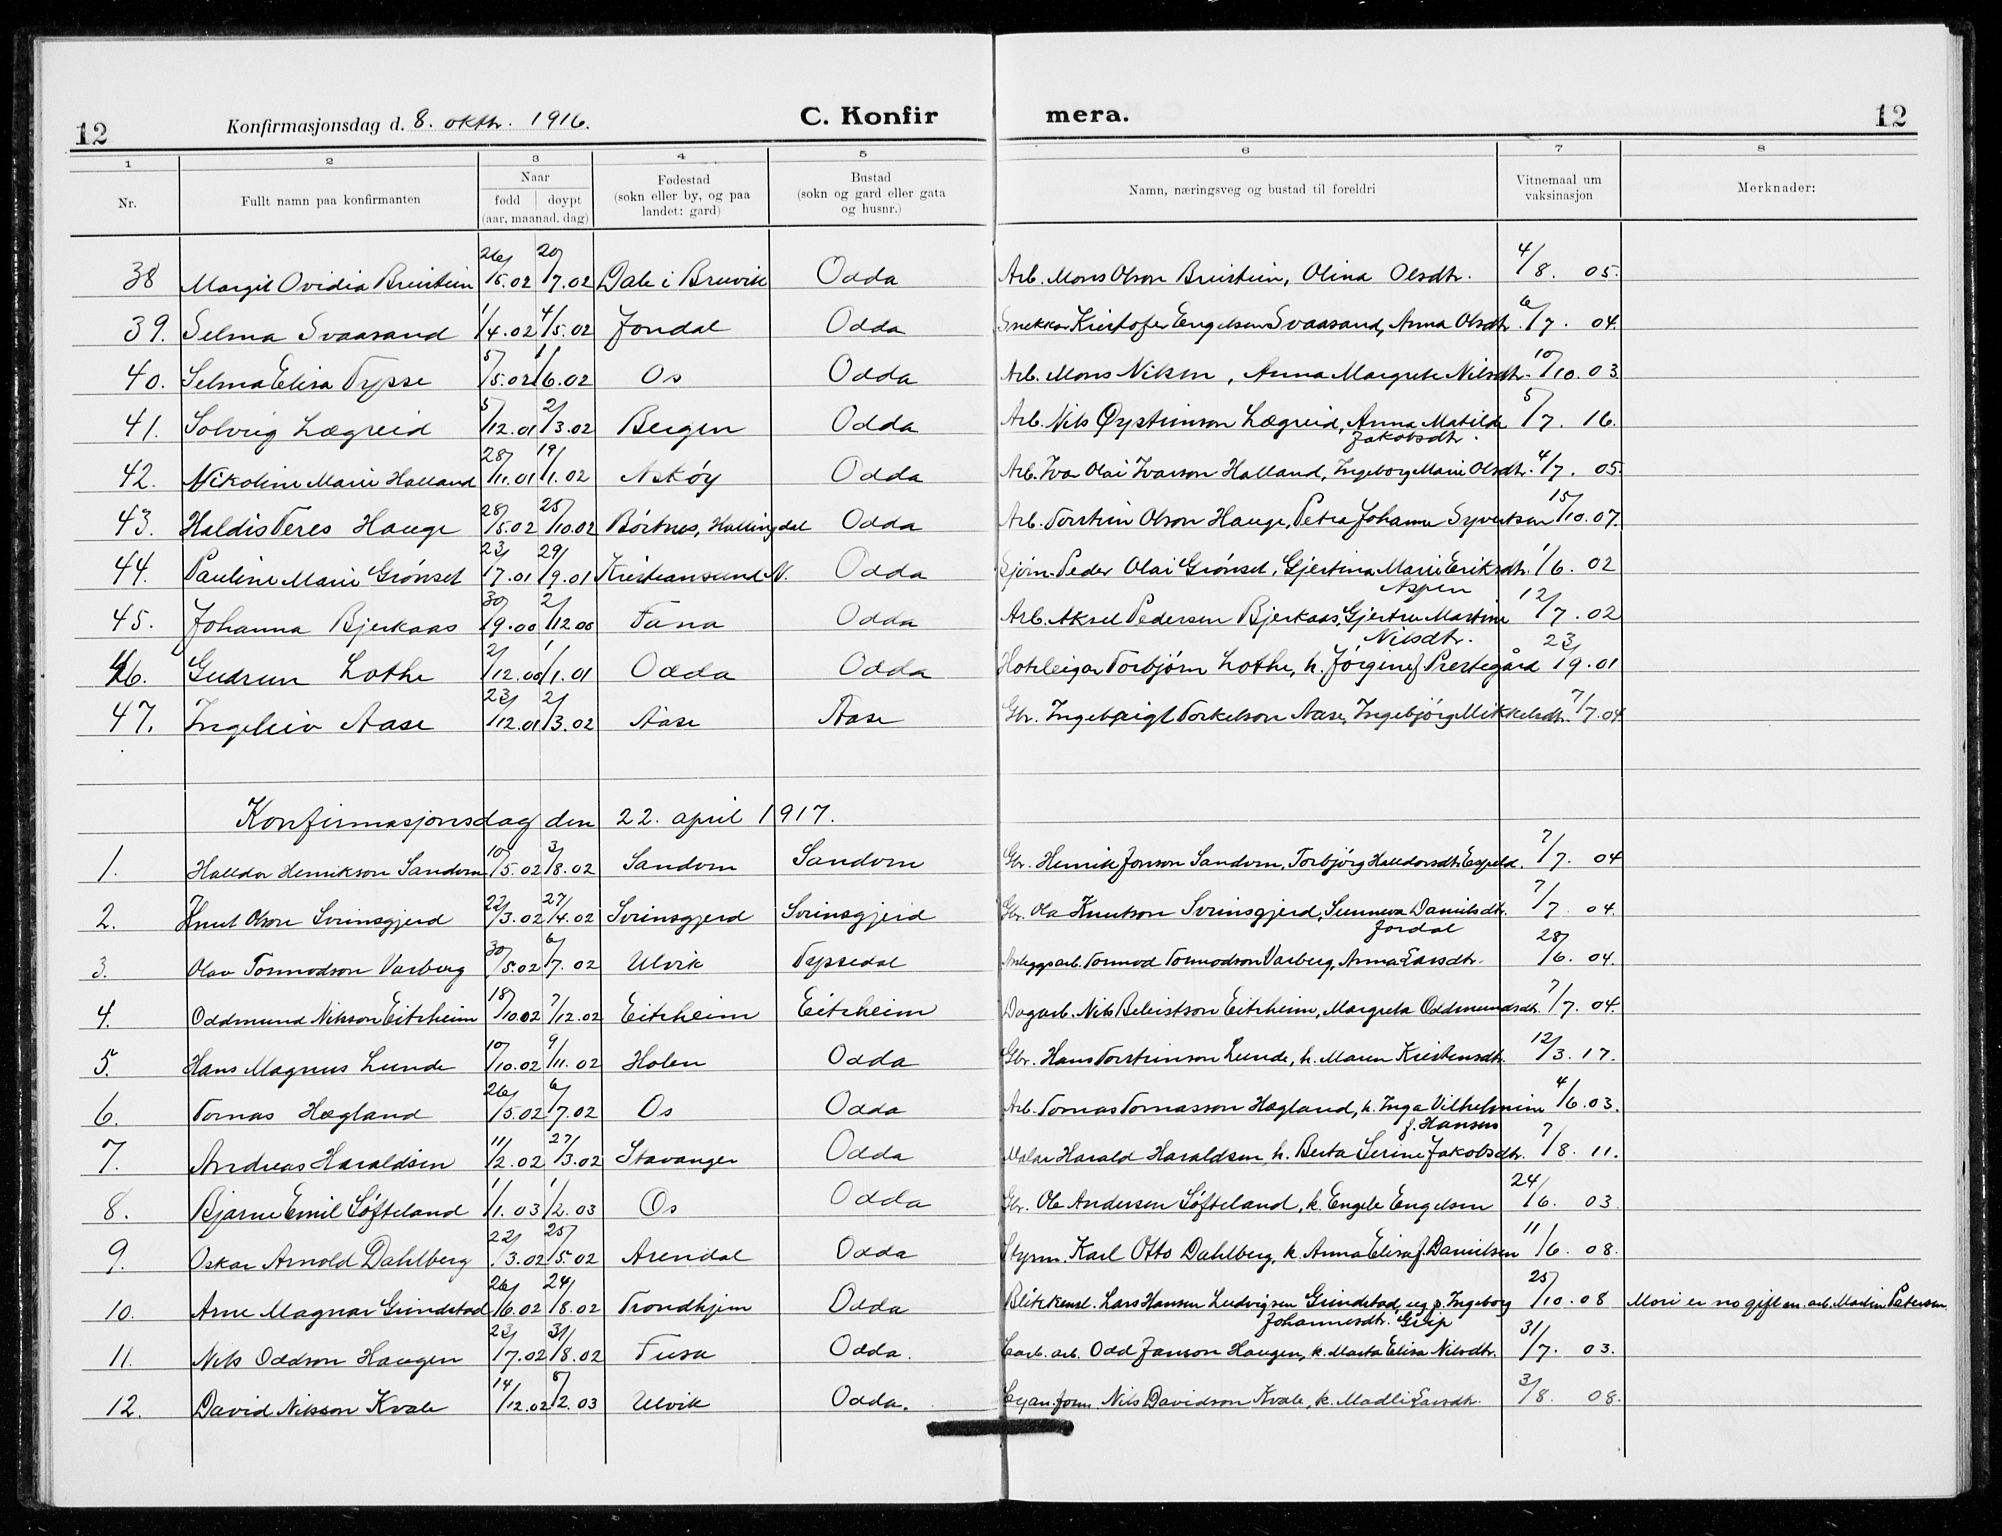 12 Konfirmasjonsdag d. 8. oktbr. 1916. C. Konfir mera. 12
1 2 3 4 5 6 7 8
Nr. Fullt namn paa konfirmanten Naar fødd døypt (aar, maanad, dag) Fødestad (sokn eller by, og paa landet: gard) Bustad (sokn og gard eller gata og husnr.) Namn, næringsveg og bustad til foreldri Vitnemaal um vaksinasjon Merknader:
38 Margit Ovidia Breistein 26/5.02 20/7.02 Dale i Bruvik Odda Arb. Mons Olson Breistein, Olina Olsdtr. 4/8. 05.
39. Selma Svaasand 1/4.02 4/5.02 Jondal Odda Snekkar Kristofer Engelsen Svaasand, Anna Olsdtr. 6/7. 04.
40. Selma Elisa Tysse 5/5.02 1/6.02 Os Odda Arb. Mons Nilsen, Anna Margrete Nilsdtr. 10/10.03.
41. Solveig Lægreid 5/12.01 2/3.02 Bergen Odda Arb. Nils Øysteinson Lægreid, Anna Matilde 5/7. 16.
Jakobsdtr.
42. Nikoline Marie Halland 28/11.01 19/1.02 Askøy Odda Arb. Ivar Olai Ivarson Halland, Ingeborg Marie Olsdtr. 4/7. 05
43. Haldis Teres Hauge 28/5.02 25/10.02 Börtnes, Hallingdal Odda Arb. Torstein Olson Hauge, Petra Johanne Syvertsen 15/10.07.
44. Pauline Marie Grönset 23/7.01 29/9.01 Kristiansund N. Odda Sjöm. Peder Olai Grönset, Gjertina Marie Eriksdtr. 1/6. 02
Aspen
45. Johanna Bjerkaas 30/9.00 2/12.00 Fana Odda Arb. Aksel Pedersen Bjerkaas, Gjertru Martine 12/7. 02
Nilsdtr.
46. Gudrun Lothe 2/12.00 1/1.01 Odda Odda Hoteleigar Torbjørn Lothe, h. Jørgine f. Prestegård 23/9.01
47. Ingeleiv Aase 23/12.01 2/3.02 Aase Aase Gbr. Ingebrigt Torkelson Aase, Ingebjörg Mikkelsdtr. 7/7.04
Konfirmasjonsdag den 22. april 1917.
1. Halldor Henrikson Sandven 10/5.02 3/8.02 Sandven Sandven Gbr. Henrik Jonson Sandven, Torbjörg Halldorsdtr. Espeld. 7/7. 04
2. Knut Olson Sveinsgjerd 22/3.02 27/4.02 Sveinsgjerd Sveinsgjerd Gbr. Ola Knutson Sveinsgjerd, Sunneva Danielsdtr. 7/7 04.
Jordal
3. Olav Tormodson Varberg 30/5.02 6/7.02 Ulvik Tyssedal Anleggsarb. Tormod Tormodson Varberg, Anna Larsdtr. 28/6. 04.
4. Oddmund Nilsson Eitrheim 18/10.02 7/12.02 Eitrheim Eitrheim Dagarb. Nils Beleistson Eitrheim, Margreta Oddmundsdtr. 7/7. 04.
5. Hans Magnus Lunde 10/10.02 9/11.02 Holen Odda Gbr. Hans Torsteinson Lunde, h. Maren Kristensdtr. 12/3. 17.
6. Tomas Hægland 26/5.02 6/7.02 Os Odda Arb. Tomas Tomasson Hægland, k. Inga Vilhelmine 4/6.03.
f. Hansen
7. Andreas Haraldsen 11/2.02 27/3.02 Stavanger Odda Malar Harald Haraldsen, h. Berta Serine Jakobsdtr. 7/8. 11.
8. Bjarne Emil Söfteland 1/1.03 1/2.03 Os Odda Gbr. Ole Andersen Söfteland, k. Engele Engelsen 24/6. 03.
9. Oskar Arnold Dahlberg 22/3.02 25/5.02 Arendal Odda Styrm. Karl Otto Dahlberg, k. Anna Elisa f. Danielsen 11/6. 08.
10. Arne Magnar Grindstad 26/6.02 24/8.02 Trondhjem Odda Blikkensl. Lars Hansen Ludvigsen Grindstad, ug p. Ingeborg 25/10.08 Mori er no gift m. arb. Martin Petersen
Johannesdtr. Grip
11. Nils Oddson Haugen 23/7.02 31/8.02 Fusa Odda. Carb. arb. Odd Janson Haugen, k. Marta Elisa Nilsdtr. 31/7. 03.
12. David Nilsson Kvale 14/12.02 5/2.03 Ulvik Odda. Cyan. form. Nils Davidson Kvale, k. Madli Larsdtr. 3/8. 08.